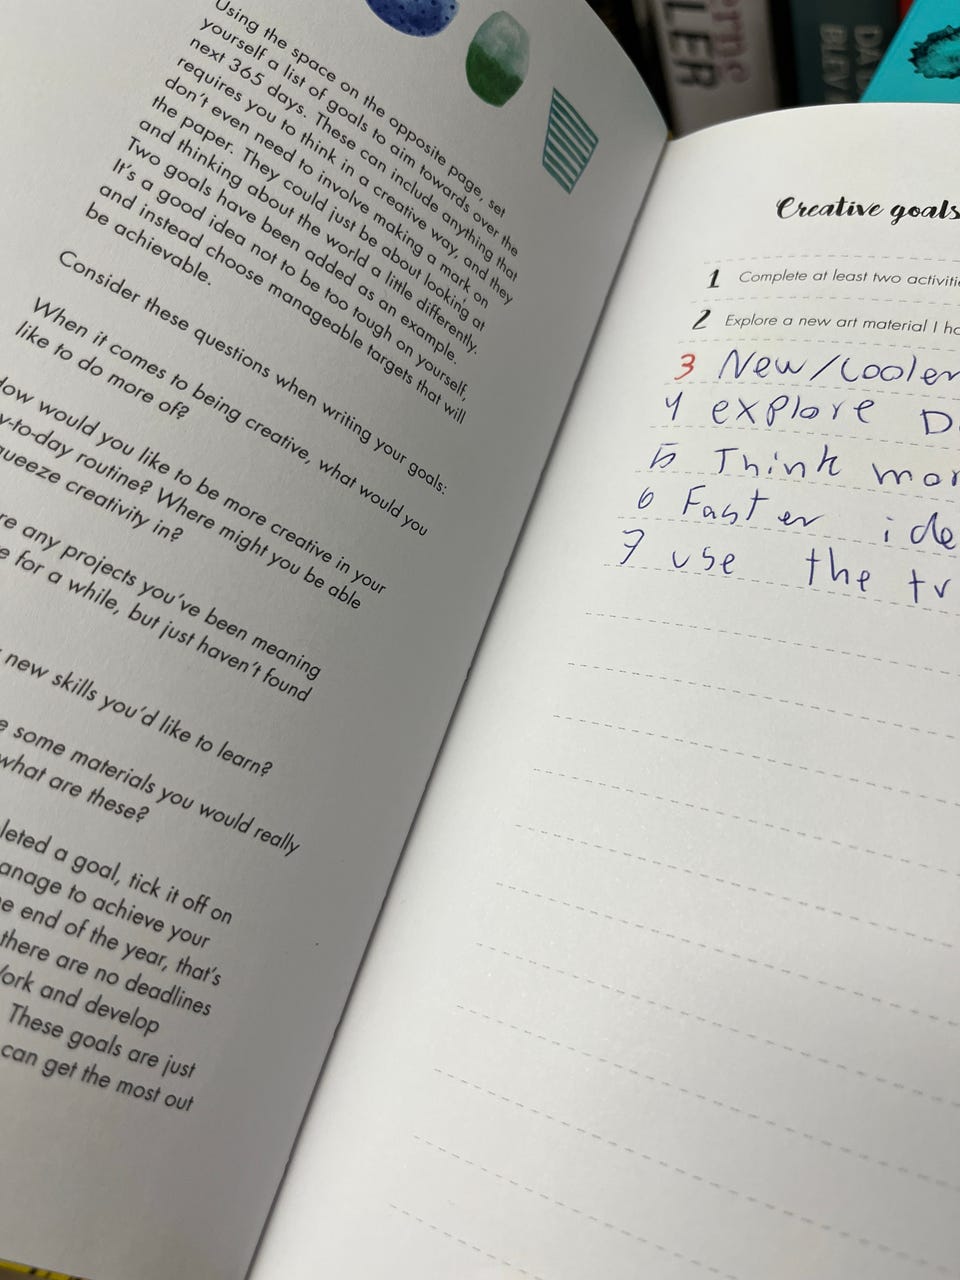 Using the space on the opposite page, set
yourself a list of goals to aim towards over the
next 365 days. These can include anything that
requires you to think in a creative way, and they
don't even need to involve making a mark on
the paper. They could just be about looking at
and thinking about the world a little differently.
Two goals have been added as an example.
It's a good idea not to be too tough on yourself,
and instead choose manageable targets that will
be achievable.
Consider these questions when writing your goals:
When it comes to being creative, what would you
like to do more of?
How would you like to be more creative in your
y-to-day routine? Where might you be able
queeze creativity in?
re any projects you've been meaning
e for a while, but just haven't found
new skills you'd like to learn?
e some materials you would really
what are these?
leted a goal, tick it off on
anage to achieve your
e end of the year, that's
there are no deadlines
ork and develop
These goals are just
can get the most out
Creative goals
1 Complete at least two activitie
2 Explore a new art material I ha
3 New/cooler
4 explore D
5 Think mor
6 Faster ide
7 use the tr
LER